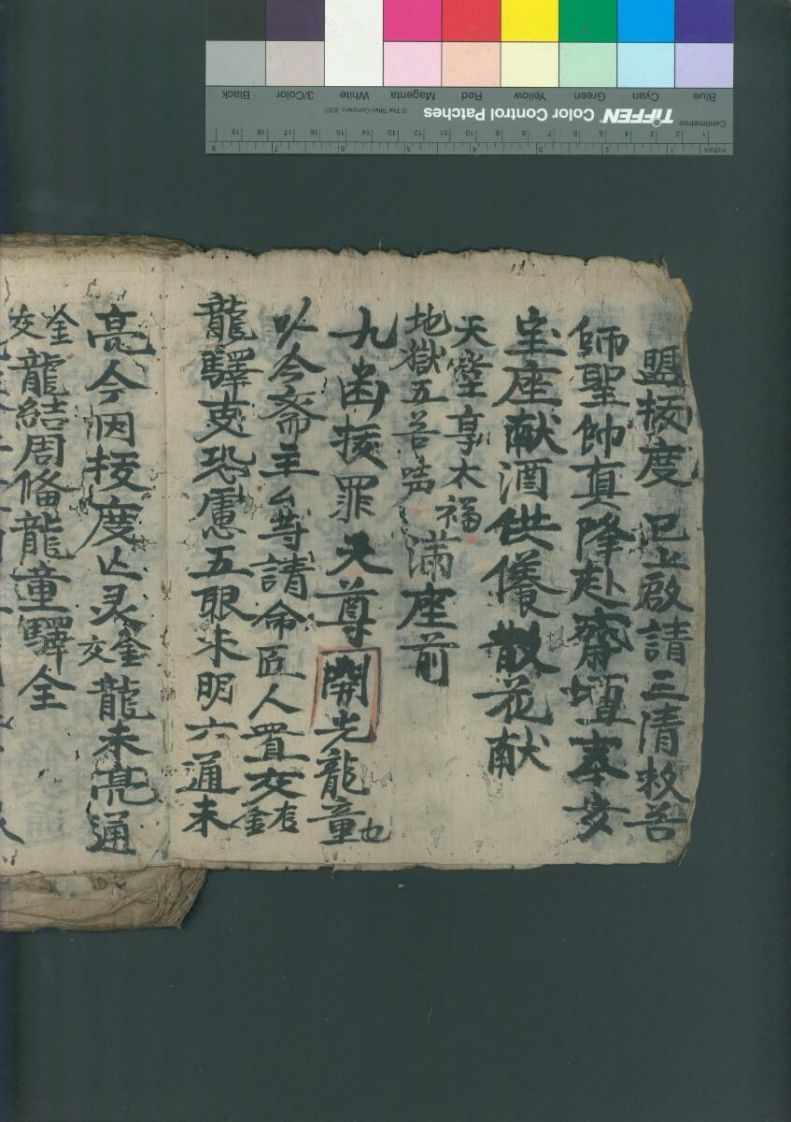 盟拔度 已上啟請三清救苦
師聖帥真降赴齋壇奉安
宝座献酒供儀散花献
天堂享太福
地獄五苦 满座前
九幽拔罪天尊 開光龍童也
以今斋主厶等請命匠人置交
金
龍驛吏恐慮五眼未明六通未
亮今因拔度亾灵金交龍未亮通
金交龍結周俻龍童驛全
Blue Cyan Green Yellow Red Magenta White 3/Color Black
TIFFEN Color Control Patches
© The Tiffen Company, 2007
Centimetres
Inches